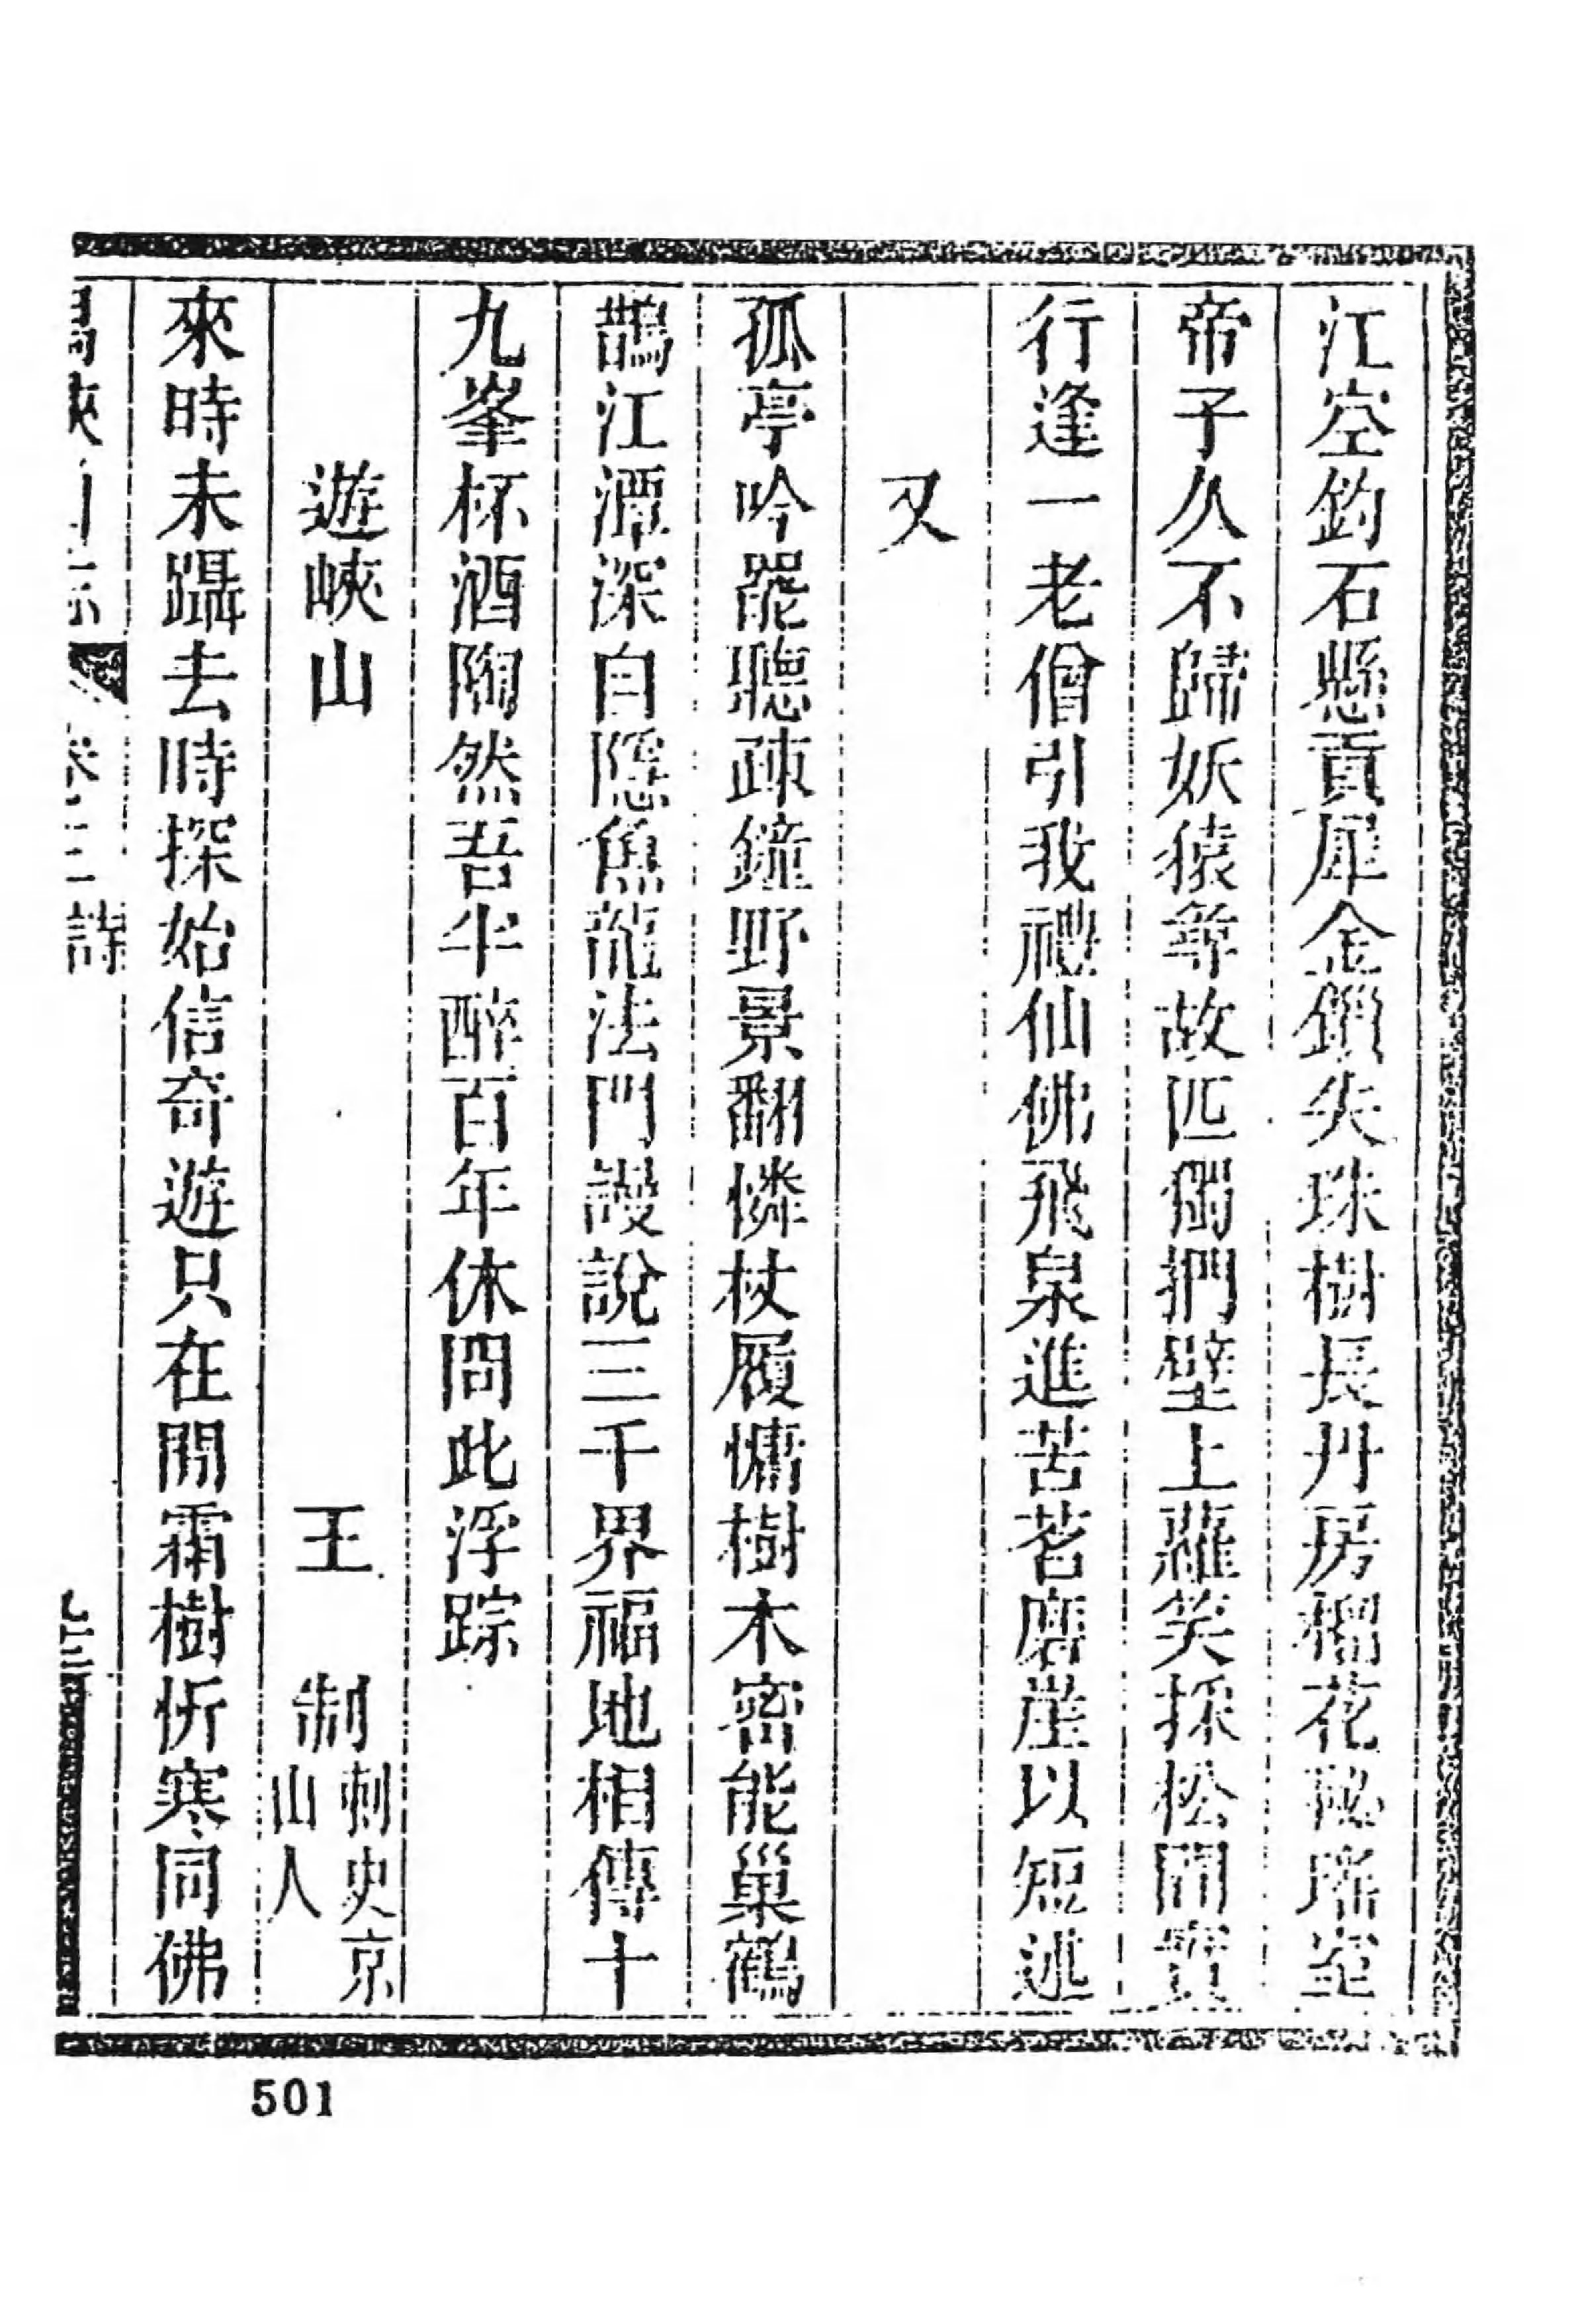 江空釣石懸貢犀金鎻失珠樹長丹房榴花秘瑤室
帝子久不歸妖猿尋故匹獨捫壁上蘿笑採松間實
行逢一老僧引我禮仙佛飛泉進苦茗磨崖以短述
又
孤亭吟罷聽疎鐘野景翻憐杖履慵樹木密能巢鶴
鵲江潭深自隱魚龍法門謾說三千界福地相傳十
九峯杯酒陶然吾半醉百年休問此浮踪
遊峽山 王制刺史京山人
來時未躡去時探始信奇遊只在閒霜樹忻寒同佛
卷三 詩
501